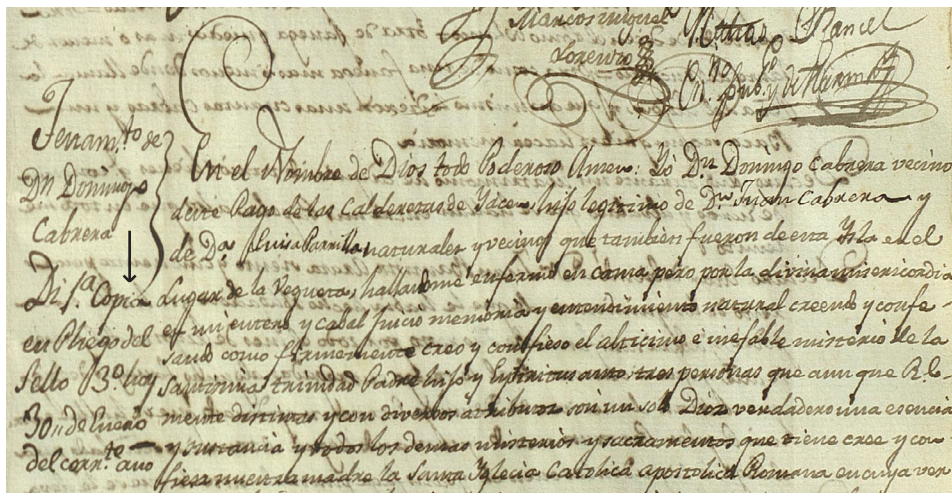 Marcos Miguel
Lorenzo
Matias Rancel
Es.no pub.o y de Mari.na
Textam.to de
Dn Domingo
Cabrera
Di f.a Copia
en Pliego del
Sello 3.o hoy
30,, de Enero
del corr.te año
En el Nombre de Dios todo Poderoso Amen: Yo D.n Domingo Cabrera vecino
deste Pago de las Calderetas de Yace hijo legitimo de D.n Juan Cabrera y
de D.a Luisa Parrilla naturales y vecinos que tambien fueron de esta Ysla en el
Lugar de la Vegueta, hallandome enfermo en cama pero por la divina misericordia
en mi entero y cabal Juicio memoria y entendimiento natural creendo y confe
sando como firmemente creo y confieso el alticimo e inefable misterio de la
Santicima trinidad Padre hijo y Espiritu santo, tres personas que aunque Rl-
mente distintas y con diverzos atributos son un solo Dios verdadero una esencia
y sustancia y todos los demas misterios y sacramentos que tiene cree y con
fiesa nuestra madre la Santa Yglecia Catolica apostolica Romana en cuya ver